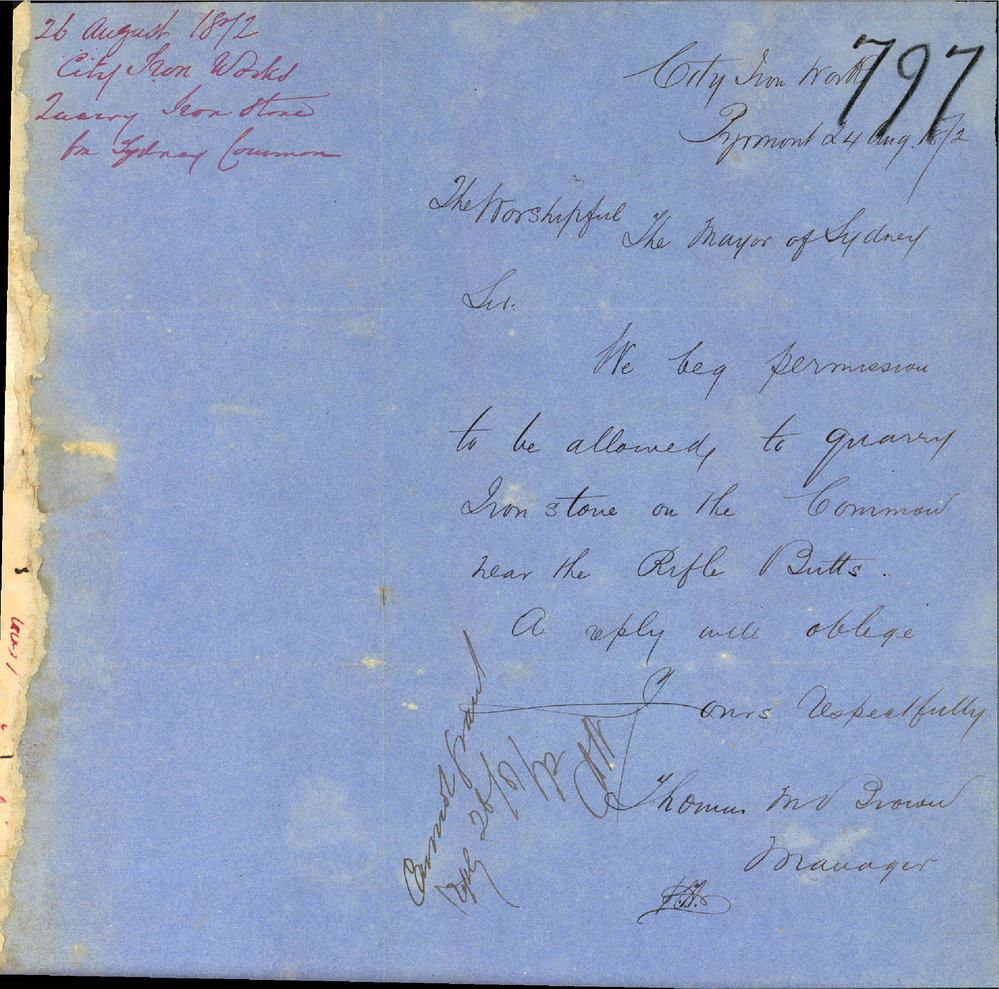 26 August 1872
City Iron Works
Quarry Iron Stone
fm Sydney Common
797
City Iron Works
Pyrmont 24 Aug. 1872
The Worshipful
The Mayor of Sydney
Sir.
We beg permission
to be allowed, to quarry
Iron stone on the Common
near the Rifle Butts.
A reply will oblege
Yours Respectfully
Thomas M Brown
Manager
Cannot Grant
Reply 26/8/72